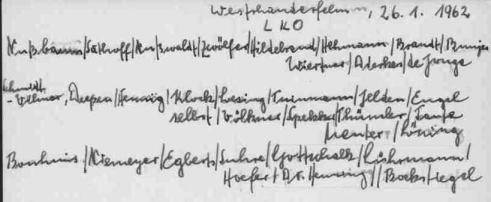 Westrhauderfehn, 26.1.1962
LKO
Nußbaum/Sathoff/Rußwaldt/Zwölfer/Hildebrand/Hehmann/Brandt/Bunjes
Wiertner/Aderkes/de Jonge
Schmidt
-Vellmer, Deepen/Hennig/Klock/Lesing/Tunnmann/Jelden/Engel
selbst/Völkner/Spekker/Thümler/
Menter/Löning
Bonhuis/Niemeyer/Egberts/Suhre/Gottschalk/Lührmann/
Hoefer/Dr. Henning//Bockstiegel